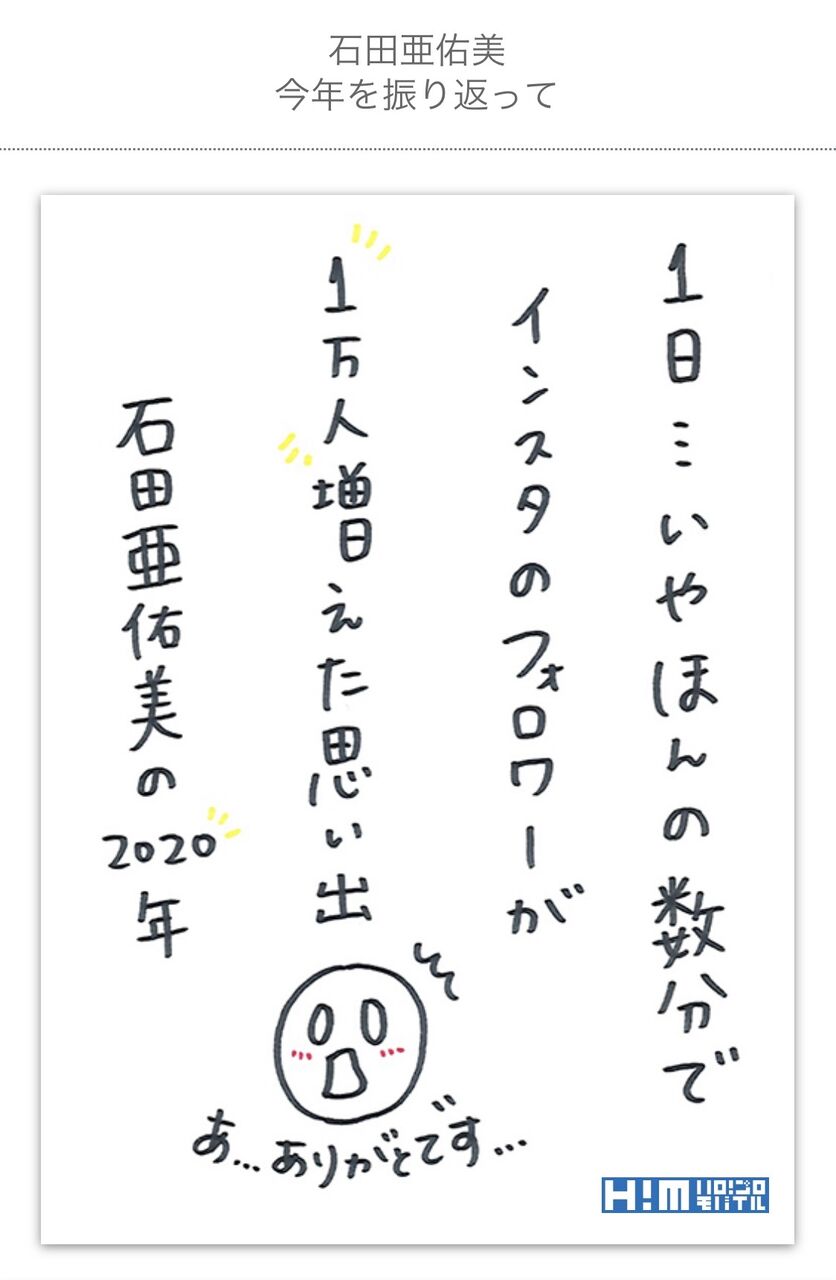 石田亜佑美
今年を振り返って
1日…いやほんの数分で
インスタのフォロワーが
1万人増えた思い出
石田亜佑美の2020年
あ…ありがとです…
H!M ハロ!プロモバイル